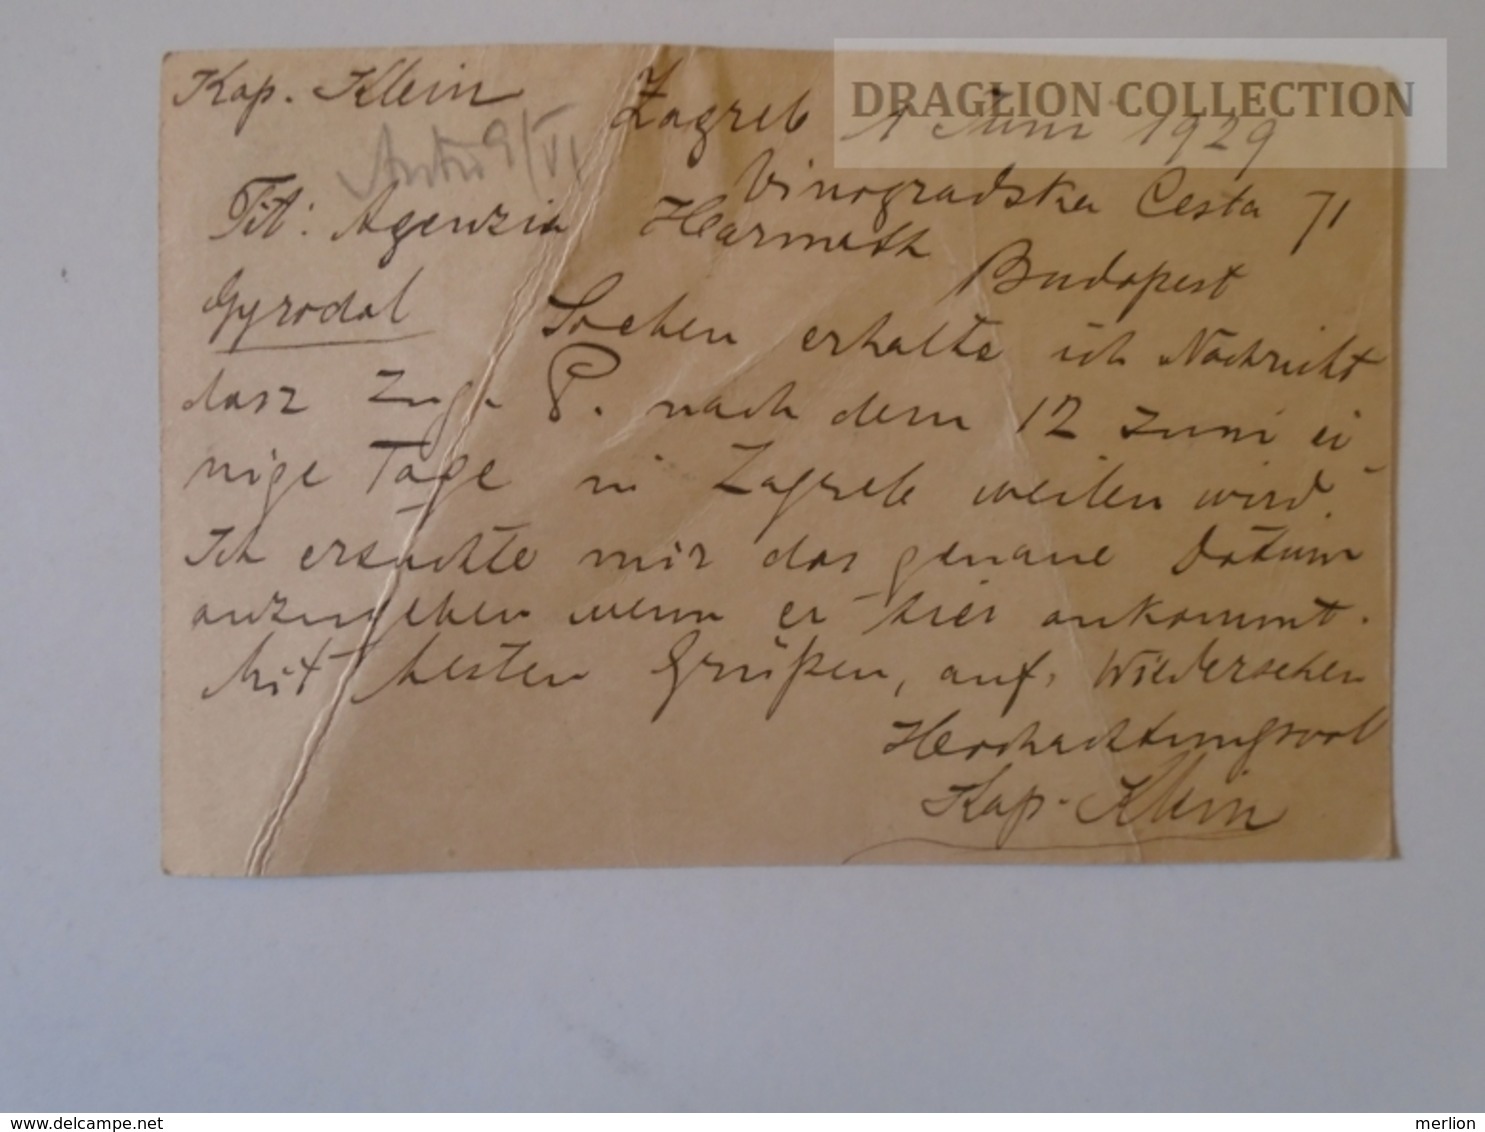 Kap. Klein
Zagreb 1 Juni 1929
DRAGLION COLLECTION
9/VI
Vinogradska Cesta 71
Tit: Agenzia Harmath
Budapest
Gyrodal Soeben erhalte ich Nachricht
dasz P. nach dem 12 Juni ei-
nige Tage in Zagreb weilen wird.
Ich ersuchte mir das genaue Datum
anzugeben wenn er hier ankommt.
Mit besten Grüßen, auf Wiedersehen
Hochachtungsvoll
Kap. Klein
merlion
www.delcampe.net